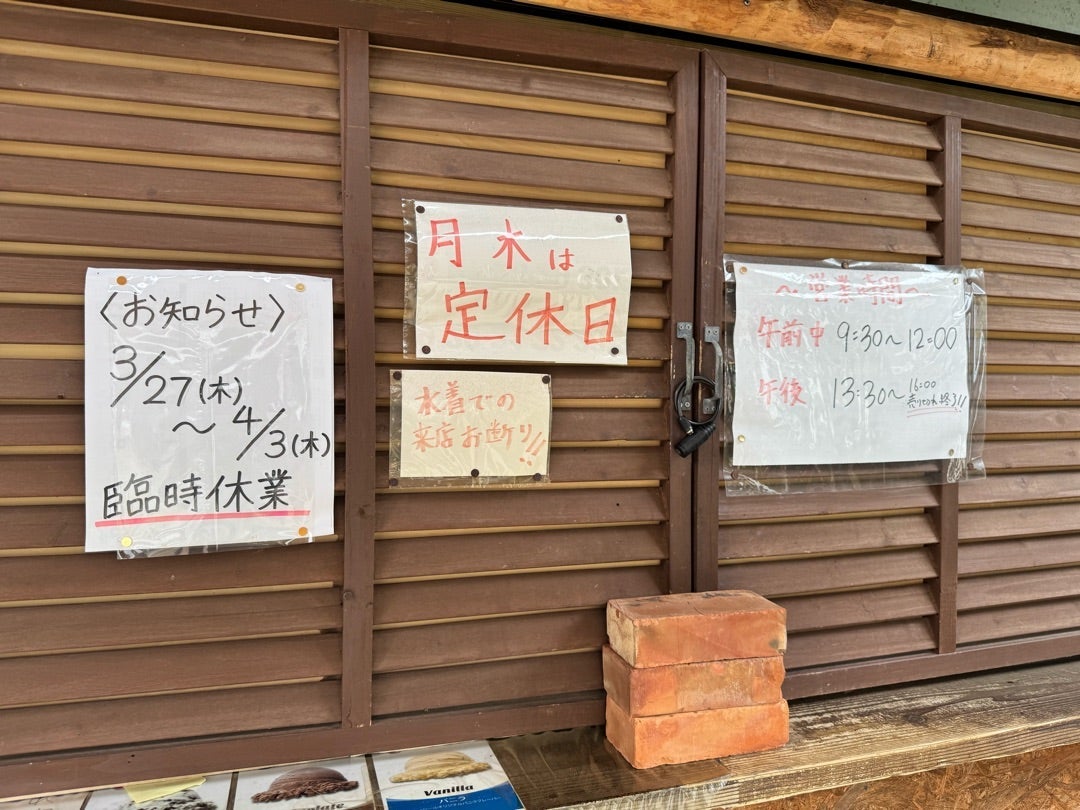 〈お知らせ〉
3/27(木)
～4/3(木)
臨時休業
月水は
定休日
水着での
来店お断り!!
～営業時間～
午前中 9:30～12:00
午後 13:30～16:00
売り切れ終了!!
Vanilla
バニラ